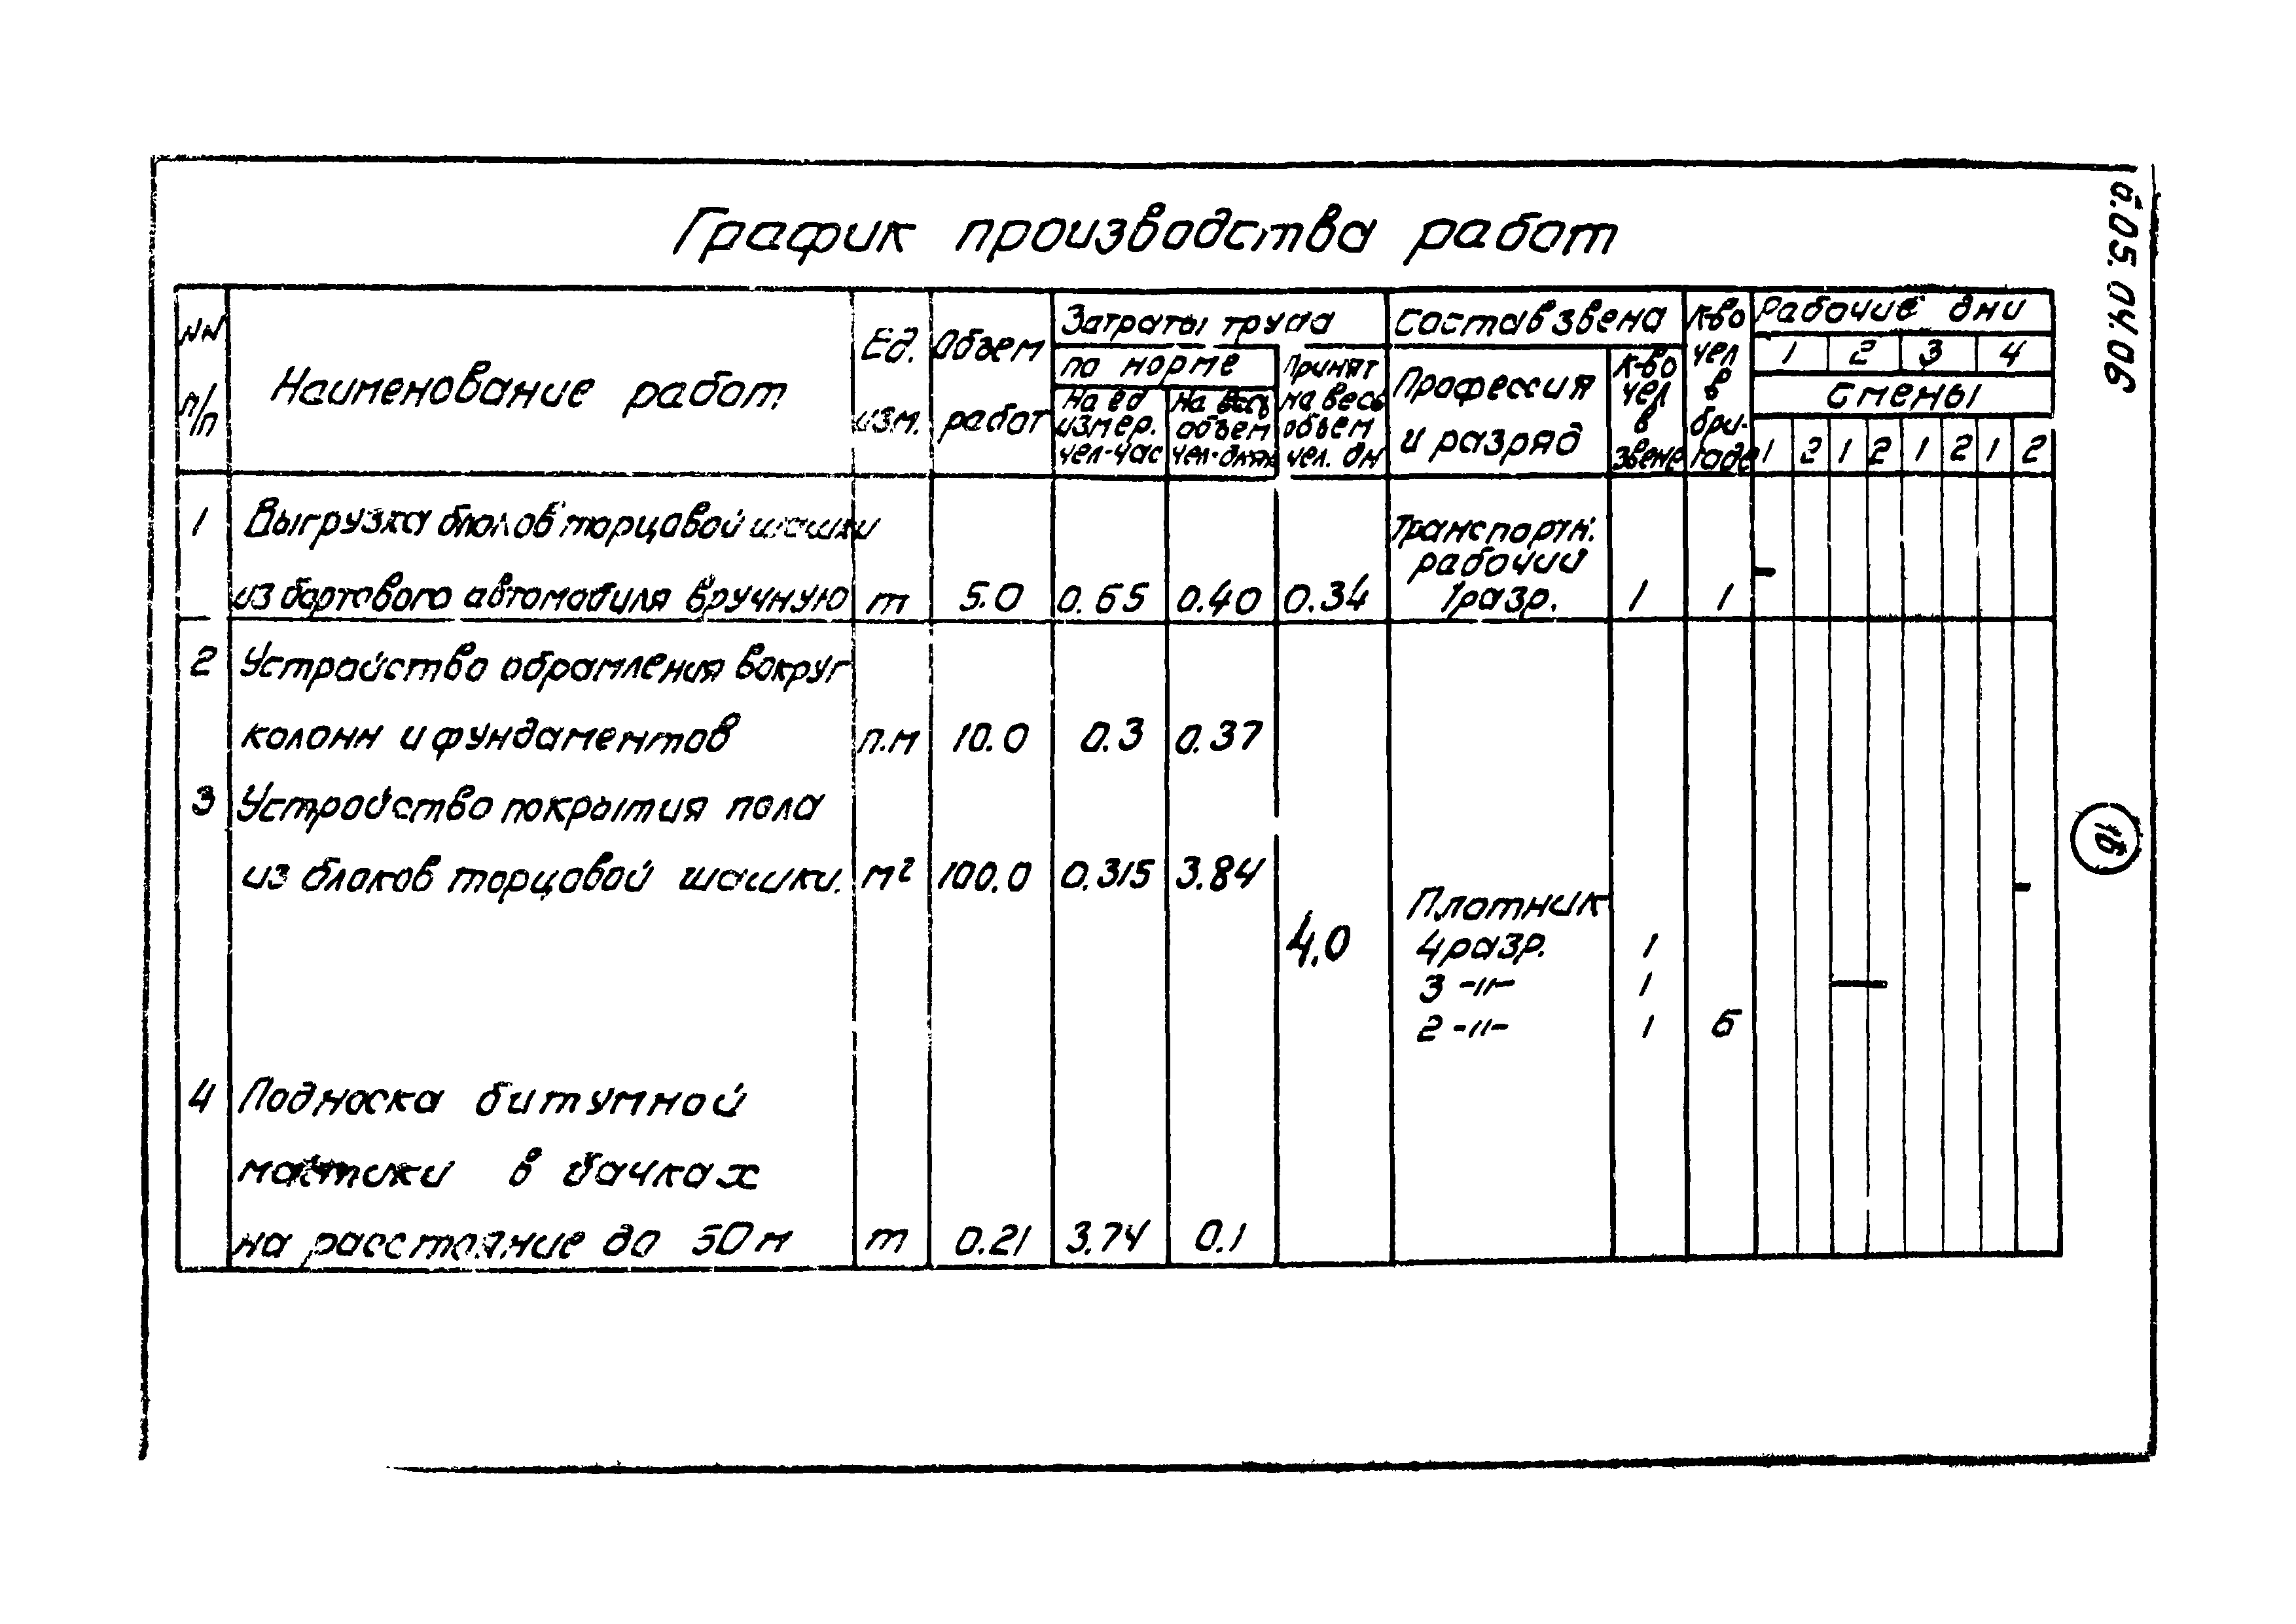 График производства работ
б.05.04.06
NN п/п
Наименование работ
Ед. изм.
Объем работ
Затраты труда
по норме
На ед измер. чел-час
На весь объем чел-днях
Принят на весь объем чел. дн
Состав звена
Профессия и разряд
К-во чел в звене
К-во чел в бри-гаде
Рабочие дни
1 2 3 4
Смены
1 2 1 2 1 2 1 2
1 Выгрузка блоков торцовой шашки
из бортового автомобиля вручную т 5.0 0.65 0.40 0.34
Транспортн.
рабочий
1 разр. 1 1
2 Устройство обрамления вокруг
колонн и фундаментов п.м 10.0 0.3 0.37
3 Устройство покрытия пола
из блоков торцовой шашки. м² 100.0 0.315 3.84
4.0
Плотник
4 разр. 1
3 -"- 1
2 -"- 1 6
4 Подноска битумной
мастики в бачках
на расстояние до 50 м т 0.21 3.74 0.1
16